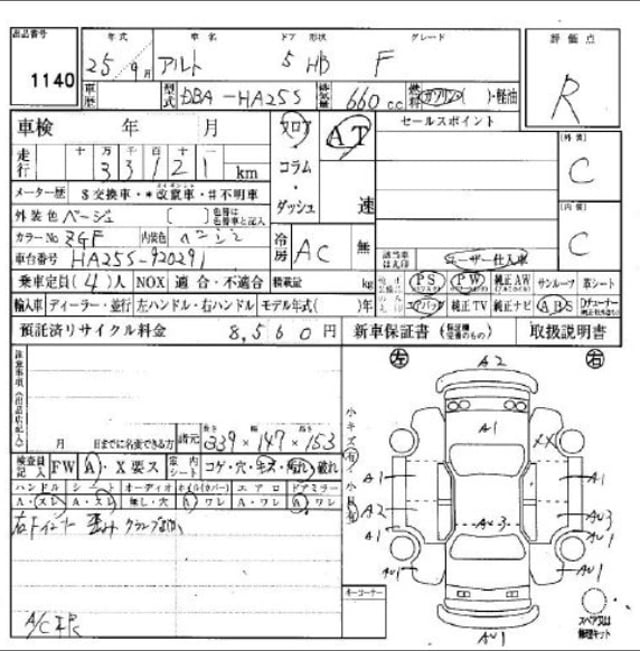 出品番号 年式 車名 ドア 形状 グレード 評価点
1140 25 9月 アルト 5 HB F R
車歴 型式 DBA-HA25S 排気量 660cc 燃料 ガソリン( )・軽油
車検 年 月 フロア AT セールスポイント
走行 十 万 千 百 十 一 33121 km コラム・ダッシュ 速 外装 C
メーター歴 $交換車・*改竄車・#不明車
外装色 ベージュ [ ] 色替は色替車と記入 内装 C
カラーNo ZGF 内装色 ベージュ 冷房 AC 無
車台番号 HA25S-920291 該当車は○印 ユーザー仕入車
乗車定員(4)人 NOX 適合・不適合 積載量 kg PS PW 純正AW サンルーフ 革シート
輸入車 ディーラー・並行 左ハンドル・右ハンドル モデル年式( )年 エアバッグ 純正TV 純正ナビ ABS
預託済リサイクル料金 8,560円 新車保証書 取扱説明書
注意事項(出品店記入) 左 右
月 日までに名変できる方 諸元 長さ 339 × 幅 147 × 高さ 153
検査員記入 FW A・X要ス 室内 シート コゲ・穴・キズ・汚れ・破れ
ハンドル シート オーディオ ホイル(カバー) エアロ ドアミラー
A・スレ A・スレ 無し・穴 A ワレ A・ワレ A ワレ
右 インナー 歪み クランプ
A/C
小キズ 有 小凹 有
A2
A1
XX
A1 A1
A2 AU3 AU3
A1 AU1
AU1 AU1
AU1
オーコーナー
スペア又は修理キット